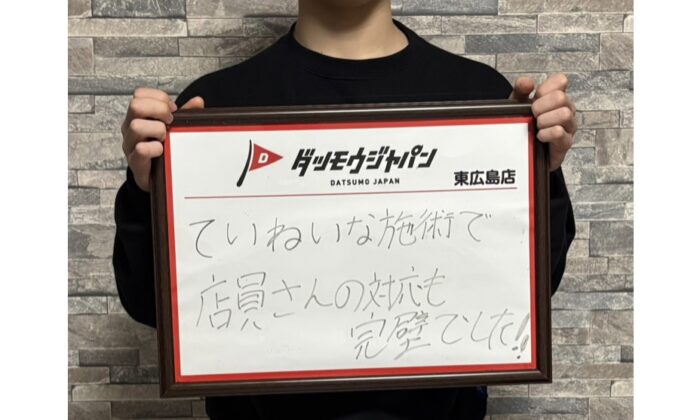 D
ダツモウジャパン
DATSUMO JAPAN
東広島店
ていねいな施術で
店員さんの対応も
完璧でした!!